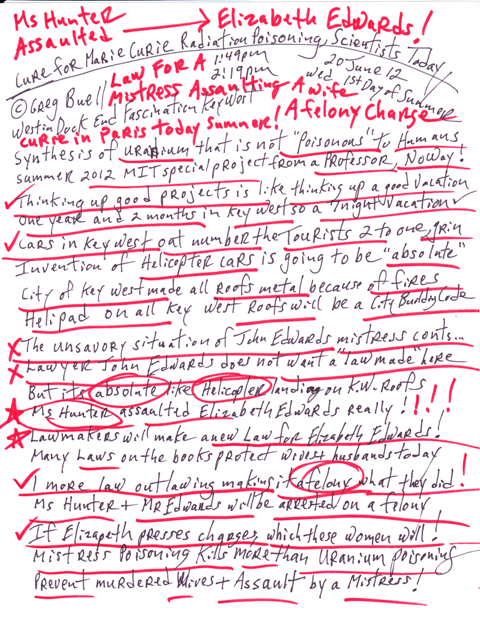 Ms Hunter → Elizabeth Edwards!
Assaulted
Cure for Marie Curie Radiation Poisoning, Scientists Today
Law For A 1:49pm 20 June 12
2:19pm Wed 1st Day of Summer
© Greg Buell Mistress Assaulting A wife
Westin Dock End Fascination Key West A felony Charge
Curie in Paris Today Summer!
Synthesis of uranium that is not "poisonous" to Humans
Summer 2012 MIT special project from a Professor, No Way!
Thinking up good projects is like thinking up a good vacation
one year and 2 months in Key West so a 7 night vacation
Cars in Key West out number the Tourists 2 to one, grin
Invention of Helicopter cars is going to be "absolute"
City of Key West made all roofs metal because of fires
Helipad on all Key West Roofs will be a City Building Code
The unsavory situation of John Edwards mistress conts...
Lawyer John Edwards does not want a "law made" here
But its absolute like Helicopter landing on K.W. Roofs
Ms Hunter assaulted Elizabeth Edwards really!!!!
Lawmakers will make a new Law for Elizabeth Edwards!
Many Laws on the books protect wives + husbands today
1 more law outlawing making it a felony what they did!
Ms Hunter + Mr Edwards will be arrested on a felony
If Elizabeth presses charges, which these women will!
Mistress Poisoning Kills more than Uranium poisoning
Prevent murdered Wives + Assault by a Mistress!